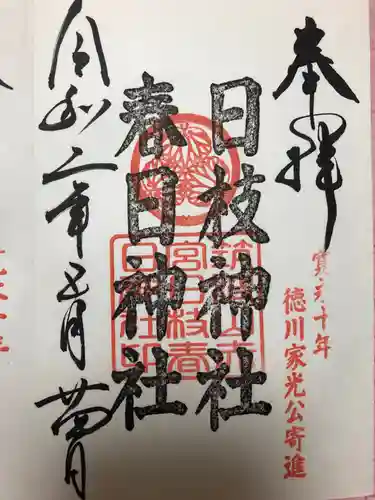 奉拝
寛永十年
徳川家光公寄進
日枝神社
春日神社
令和二年 月廿四日
宮日枝春
日神社印